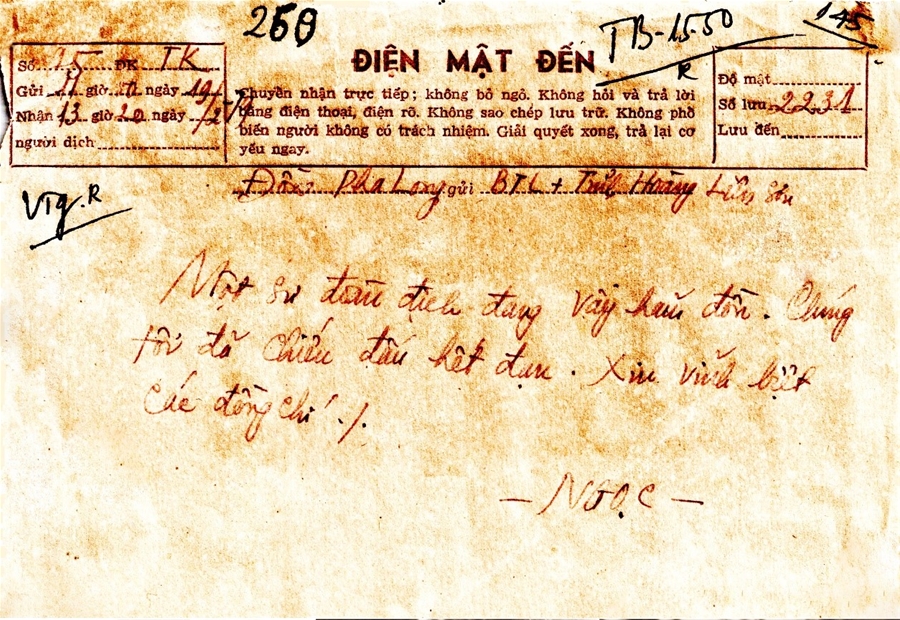 250
TB-15.50
R
145
ĐIỆN MẬT ĐẾN
Số 15 ĐK TK
Gửi 11 giờ 10 ngày 19/2
Nhận 13 giờ 20 ngày
người dịch
Chuyển nhận trực tiếp; không bỏ ngỏ. Không hỏi và trả lời
bằng điện thoại, điện rõ. Không sao chép lưu trữ. Không phổ
biến người không có trách nhiệm. Giải quyết xong, trả lại cơ
yếu ngay.
Độ mật
Số lưu 2231
Lưu đến
Đồn: Pha Long gửi BTL + Tỉnh Hoàng Liên Sơn
VTg.R
Một sư đoàn địch đang vây hãm đồn. Chúng
tôi đã chiến đấu hết đạn. Xin vĩnh biệt
các đồng chí ./.
— NGỌC —